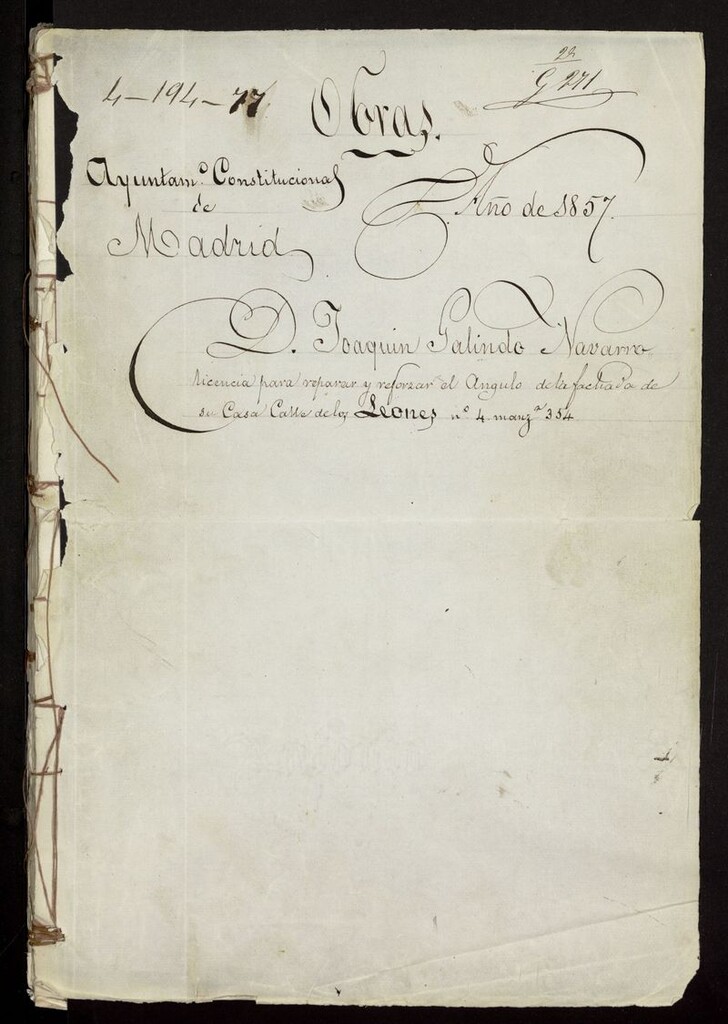 4-194-77
Obras.
22
G 271
Ayuntam.º Constitucional
de
Madrid
Año de 1857.
D. Joaquin Galindo Navarro
licencia para reparar y reforzar el Angulo de la fachada de
su Casa Calle de los Leones nº 4 manzª 354